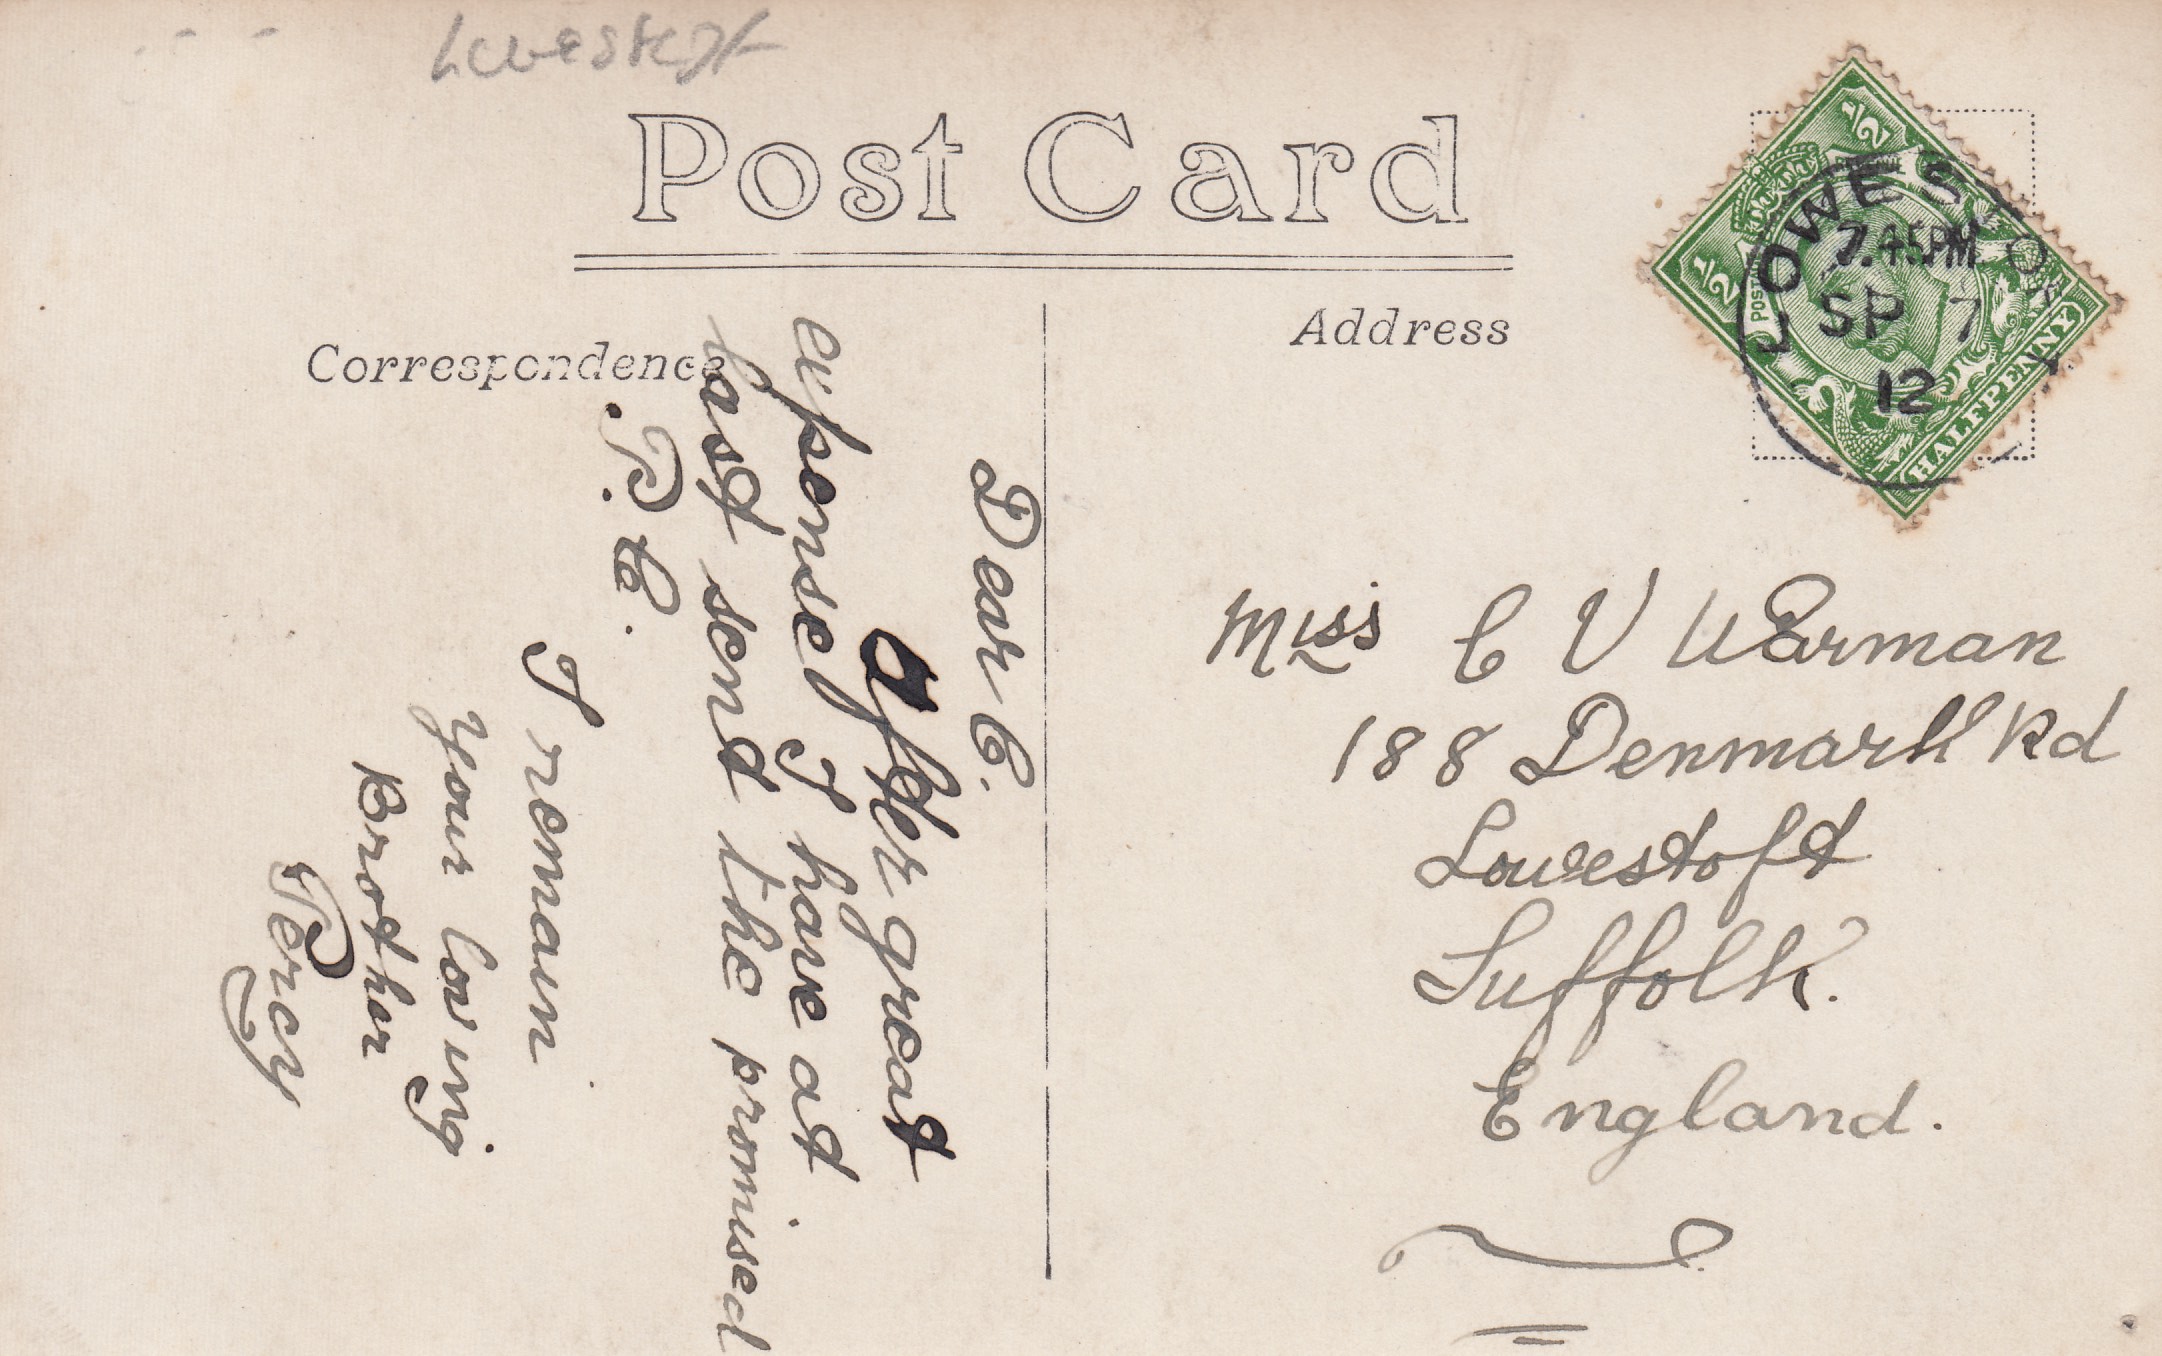 Lowestoft
Post Card
Correspondence
Address
1/2
1/2
HALFPENNY
LOWESTOFT
7.45PM
SP 7
12
Dear C.
After great
expense I have at
last send the promised
P.C.
I remain
Your loving
Brother
Percy
Miss C V Warman
188 Denmark Rd
Lowestoft
Suffolk.
England.